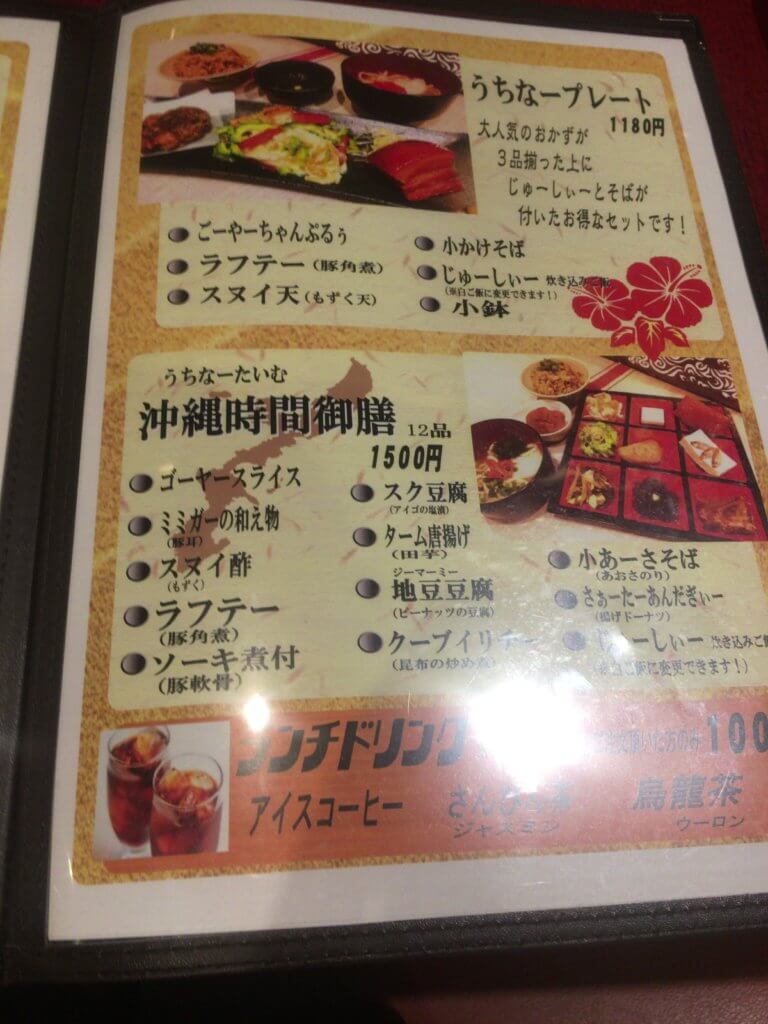 うちなープレート
1180円
大人気のおかずが
3品揃った上に
じゅーしぃーとそばが
付いたお得なセットです!
ごーやーちゃんぷるぅ
ラフテー(豚角煮)
スヌイ天(もずく天)
小かけそば
じゅーしぃー 炊き込みご飯
(※白ご飯に変更できます!)
小鉢
うちなーたいむ
沖縄時間御膳 12品
1500円
ゴーヤースライス
ミミガーの和え物
(豚耳)
スヌイ酢
(もずく)
ラフテー
(豚角煮)
ソーキ煮付
(豚軟骨)
スク豆腐
(アイゴの塩漬)
ターム唐揚げ
(田芋)
ジーマーミー
地豆豆腐
(ピーナッツの豆腐)
クーブイリチー
(昆布の炒め煮)
小あーさそば
(あおさのり)
さぁーたーあんだぎぃー
(揚げドーナツ)
じゅーしぃー 炊き込みご飯
(※白ご飯に変更できます!)
ランチドリンク
頂いた方のみ 100
アイスコーヒー
さんぴん茶
ジャスミン
烏龍茶
ウーロン